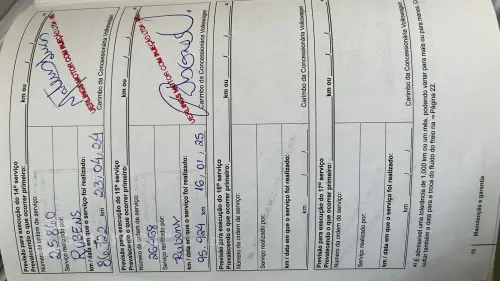 Previsão para execução do 14º serviço
Prevalecendo o que ocorrer primeiro:
km ou
Número da ordem de serviço:
25860
Serviço realizado por:
RUBENS
km / data em que o serviço foi realizado:
86.722 km 23, 04, 24
Carimbo da Concessionária Volkswagen
Previsão para execução do 15º serviço
Prevalecendo o que ocorrer primeiro:
km ou
Número da ordem de serviço:
Serviço realizado por:
Rubens
km / data em que o serviço foi realizado:
95.924 km 16, 01, 25
Carimbo da Concessionária Volkswagen
Previsão para execução do 16º serviço
Prevalecendo o que ocorrer primeiro:
km ou
Número da ordem de serviço:
Serviço realizado por:
km / data em que o serviço foi realizado:
km
Carimbo da Concessionária Volkswagen
Previsão para execução do 17º serviço
Prevalecendo o que ocorrer primeiro:
km ou
Número da ordem de serviço:
Serviço realizado por:
km / data em que o serviço foi realizado:
km
Carimbo da Concessionária Volkswagen
a) É admissível uma tolerância de 1.000 km ou um mês, podendo variar para mais ou para menos
sultar também a data para a troca do fluido do freio na ⇒ Página 22.
16 Manutenção e garantia